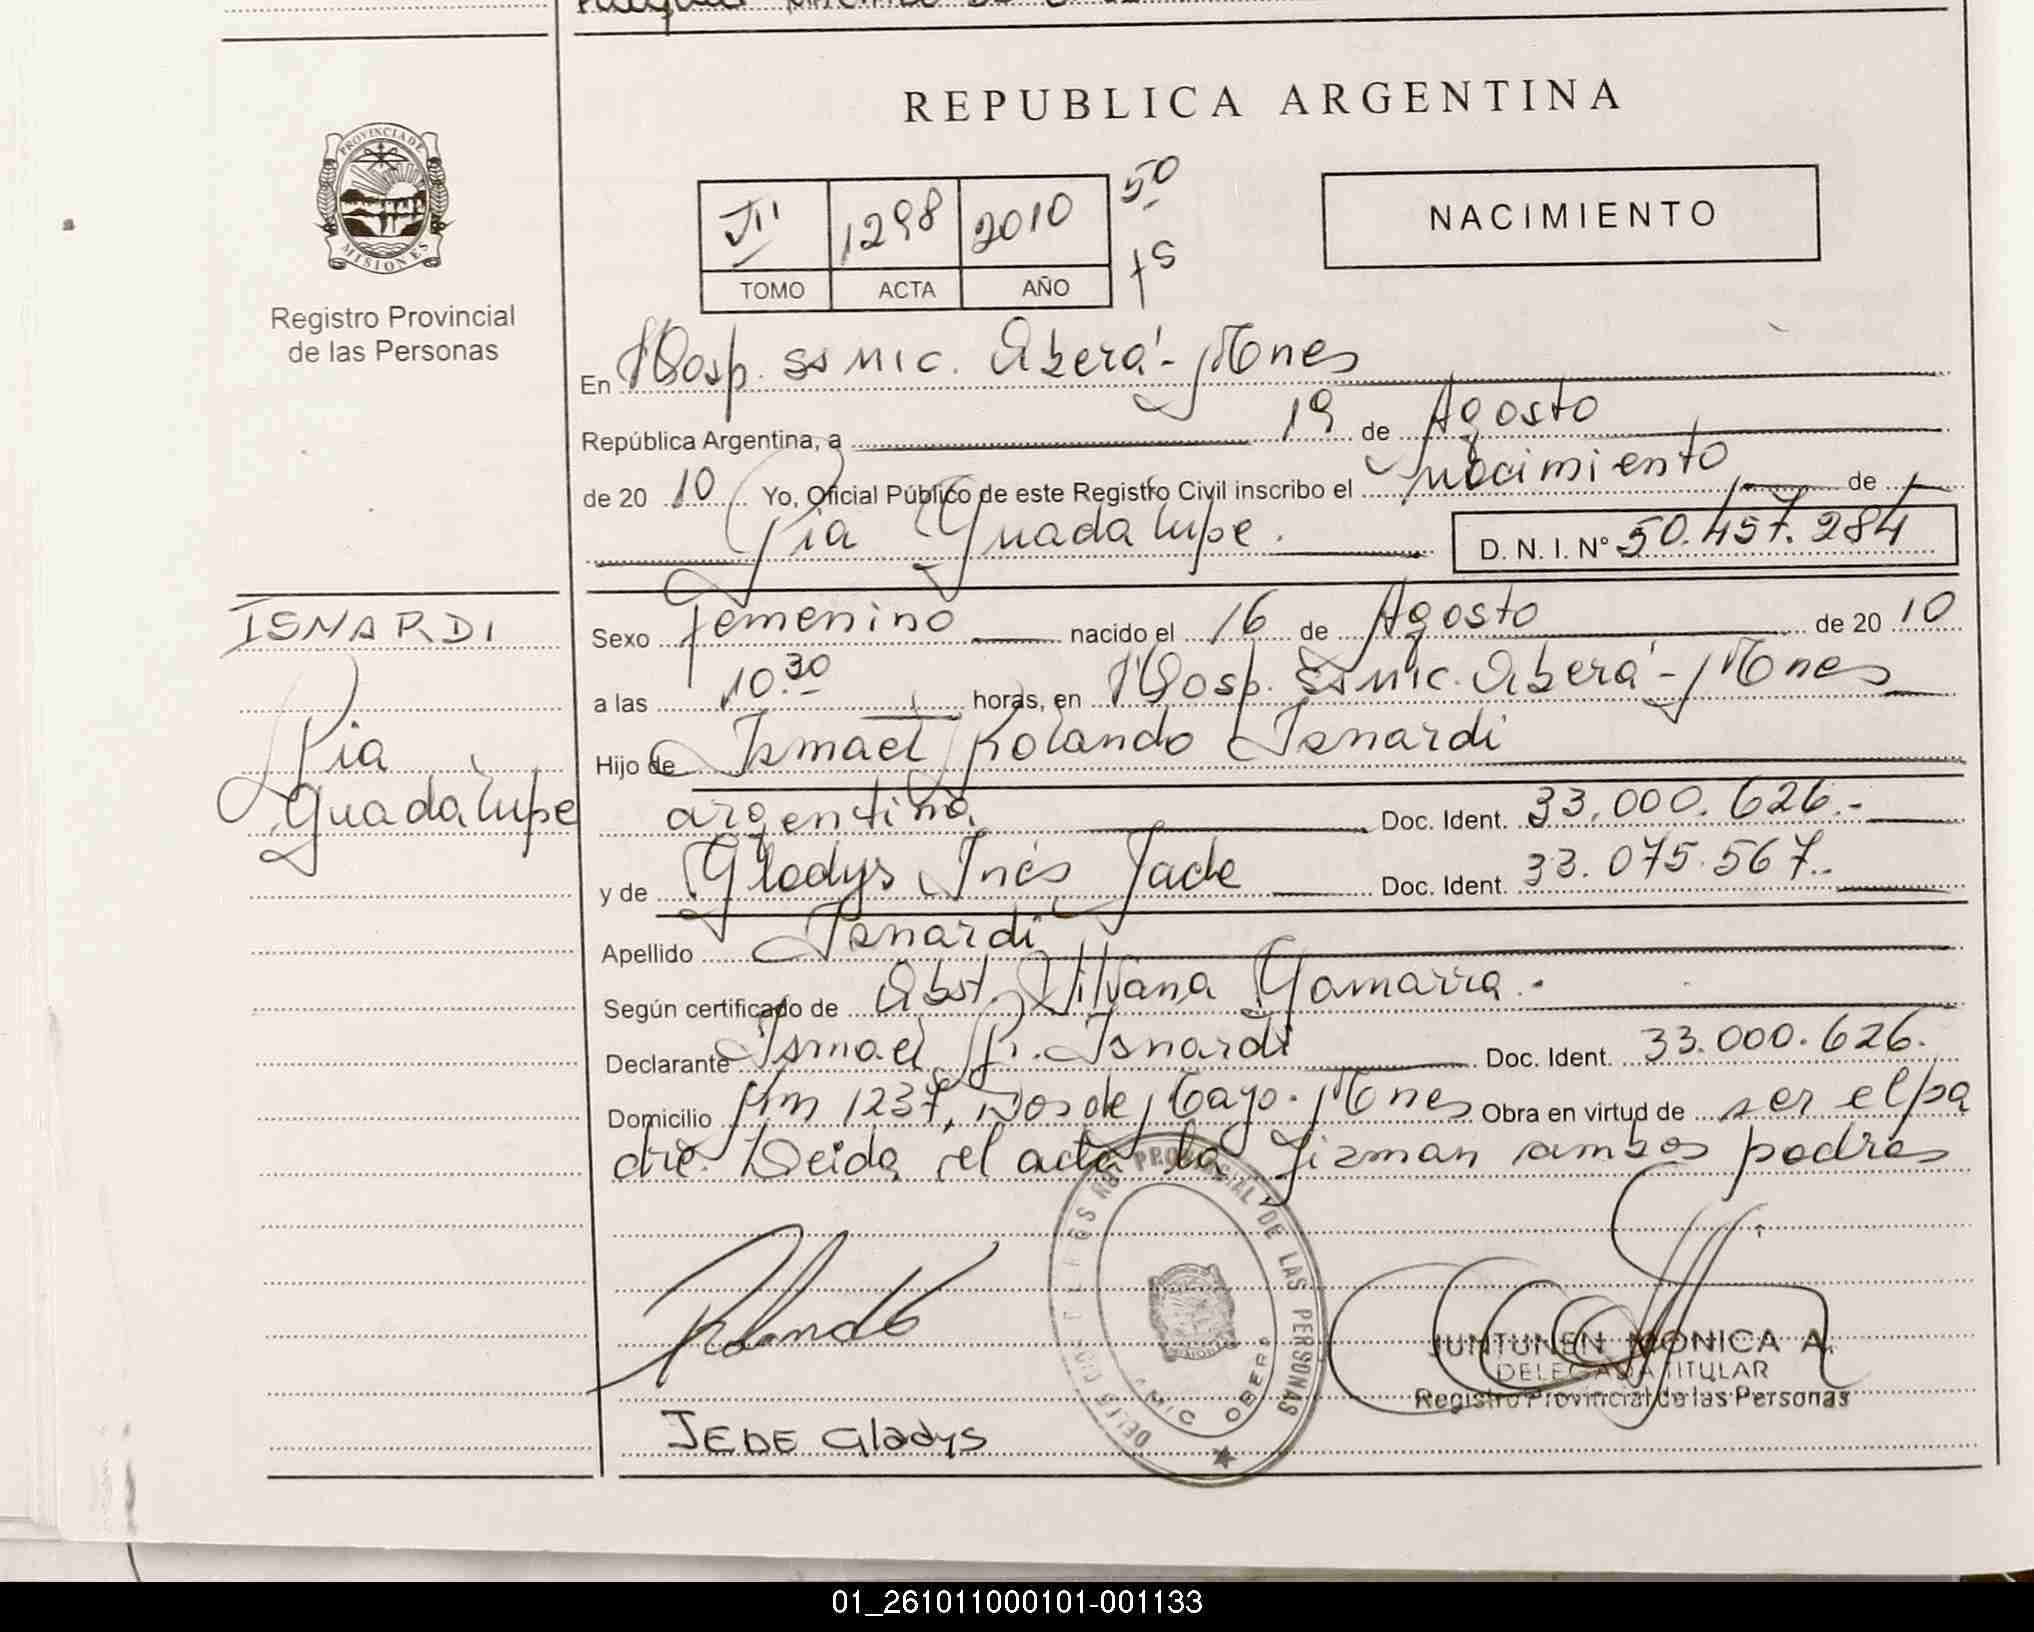 REPUBLICA ARGENTINA
PROVINCIA DE
MISIONES
Registro Provincial
de las Personas
III 1298 2010 50
TOMO ACTA AÑO 75
NACIMIENTO
En Hosp. SSMIC. Oberá - Mnes
República Argentina, a 19 de Agosto
de 20 10 Yo, Oficial Público de este Registro Civil inscribo el nacimiento de
Pia Guadalupe. D. N. I. Nº 50.457.284
ISNARDI
Pia
Guadalupe
Sexo femenino nacido el 16 de Agosto de 20 10
a las 10.30 horas, en Hosp. SSMIC. Oberá - Mnes
Hijo de Ismael Rolando Isnardi
argentino Doc. Ident. 33.000.626.-
y de Gladys Inés Jede Doc. Ident. 33.075.567.-
Apellido Isnardi
Según certificado de Obst. Silvana Gamarra.-
Declarante Ismael R. Isnardi Doc. Ident. 33.000.626.
Domicilio Km 1237, Dos de Mayo. Mnes Obra en virtud de ser el pa
dre. Leida el acta la firman ambos padres
Rolando
JEDE Gladys
PROVINCIAL DE LAS PERSONAS
OBERA
JUNTUNEN MONICA A.
DELEGADA TITULAR
Registro Provincial de las Personas
01_261011000101-001133